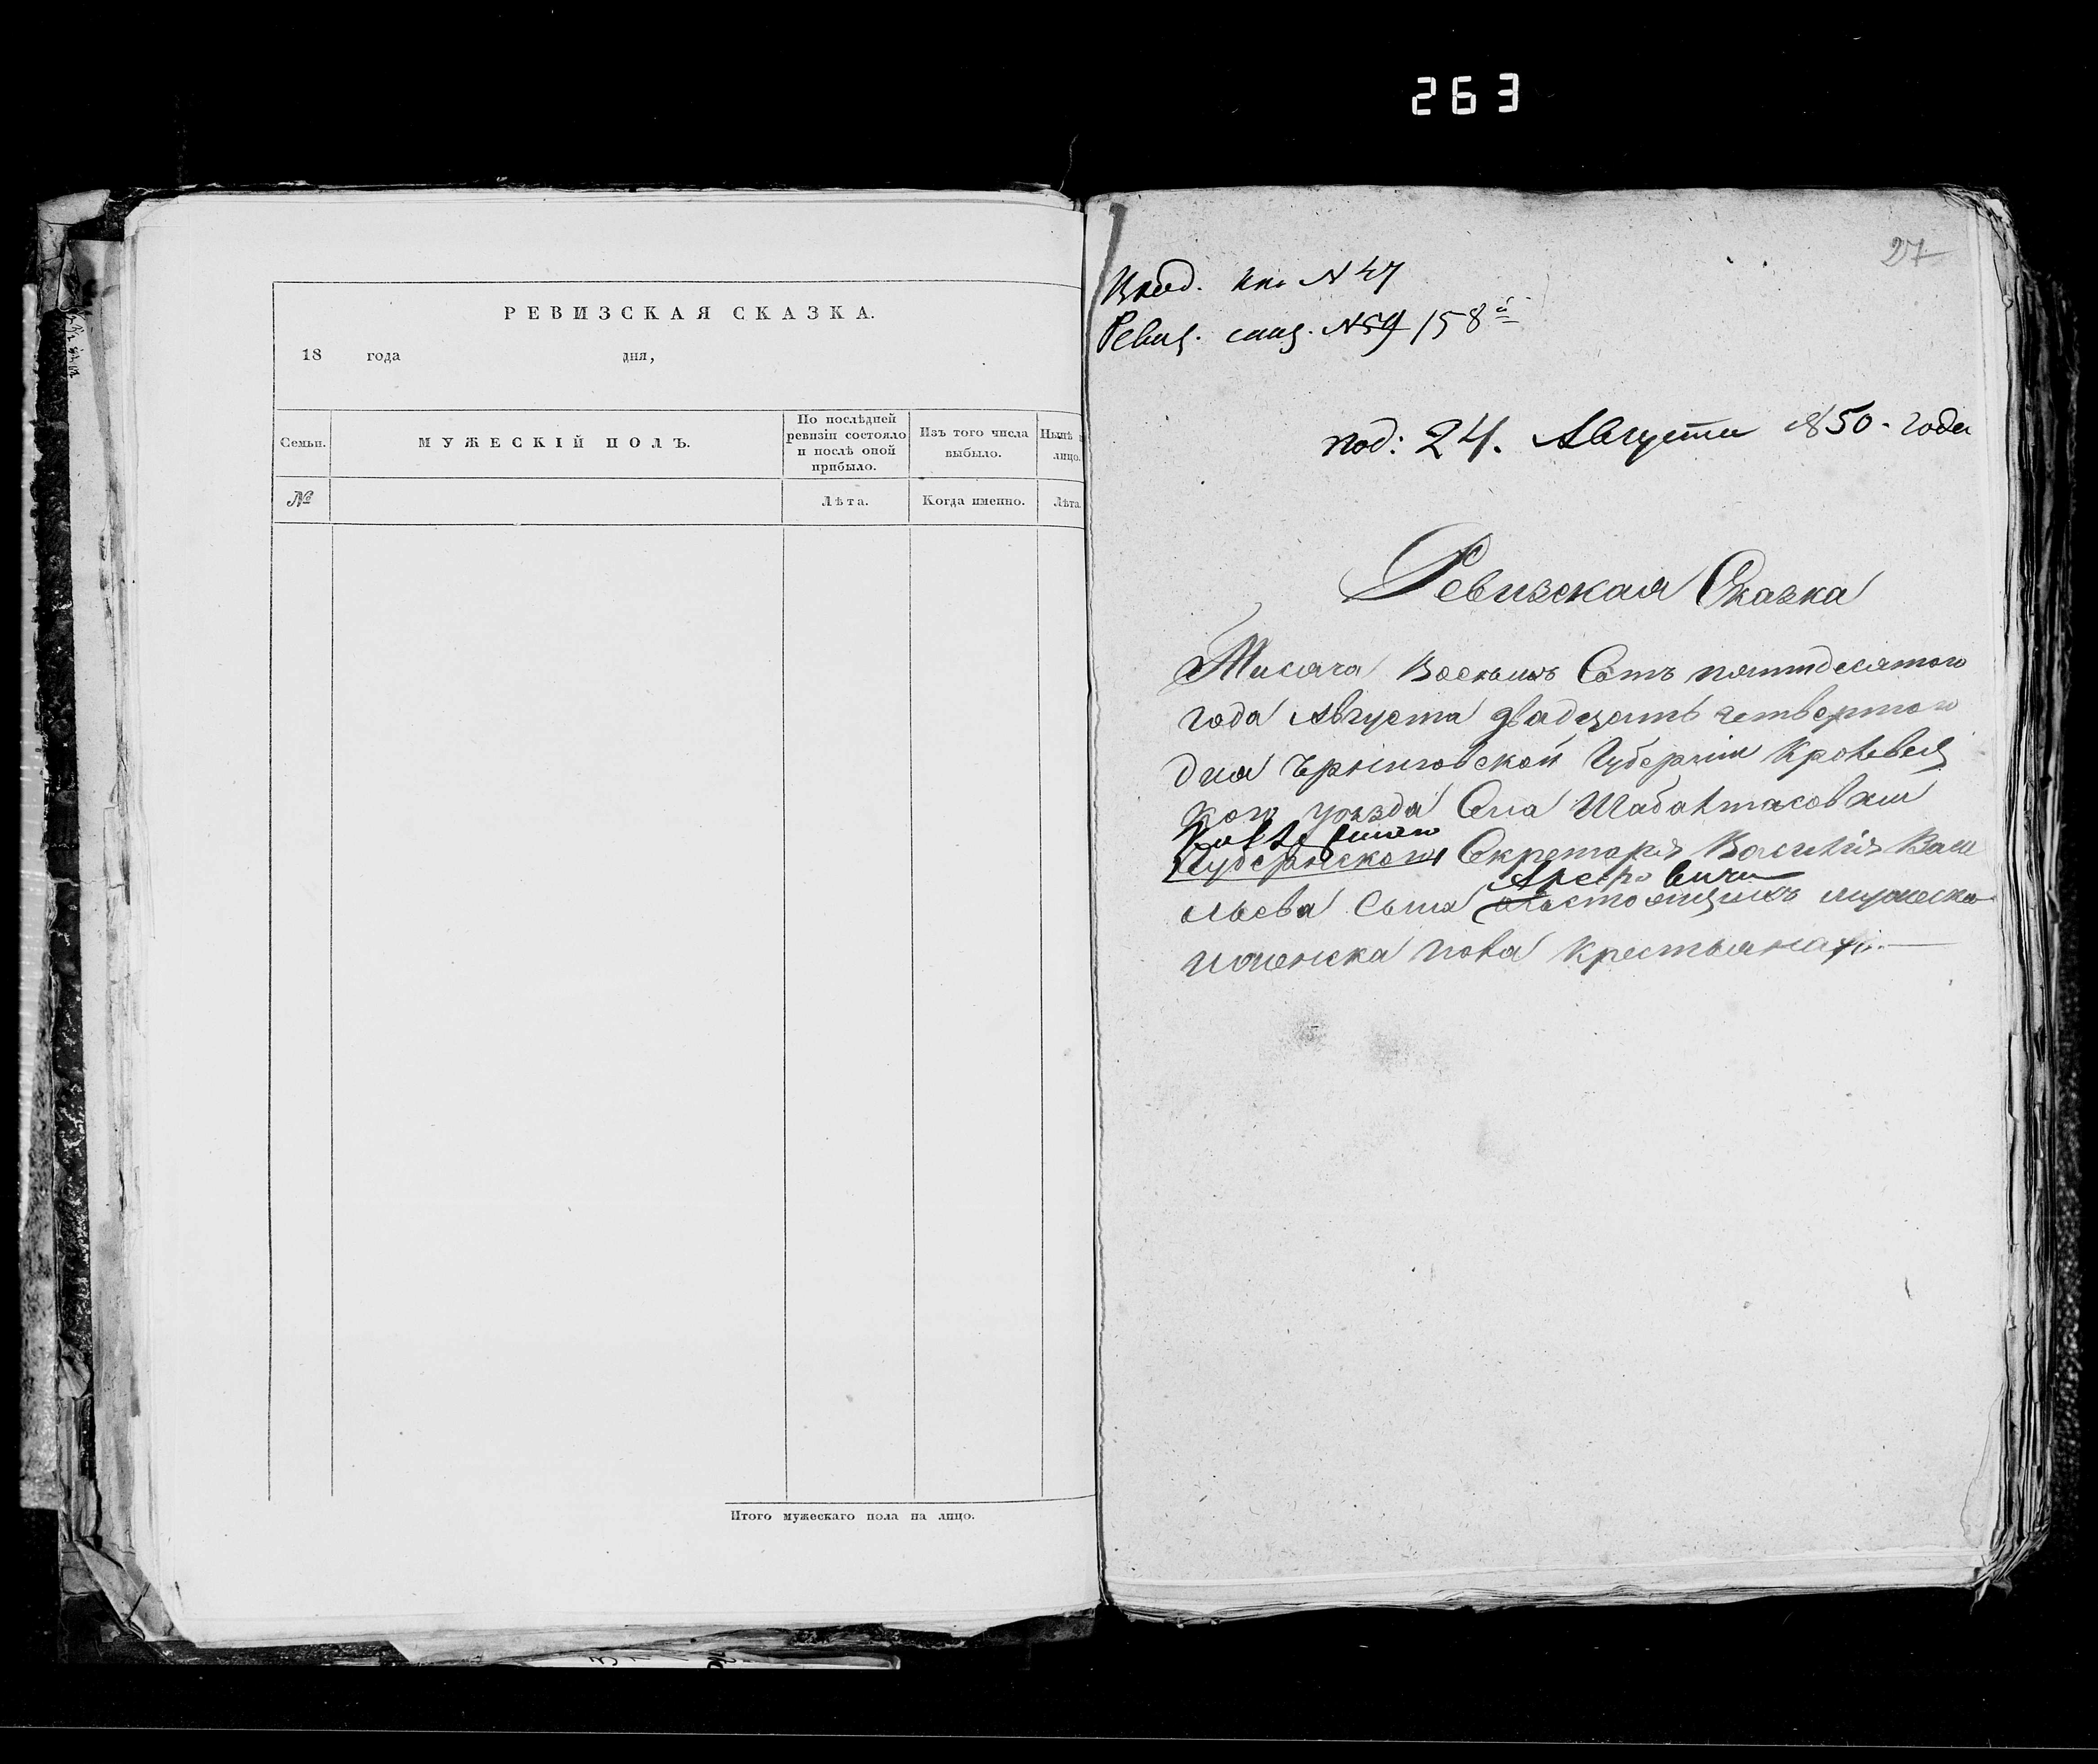 263
РЕВИЗСКАЯ СКАЗКА.
18 года дня,
Семьи.
МУЖЕСКІЙ ПОЛЪ.
По послѣдней
ревизіи состояло
и послѣ оной
прибыло.
Изъ того числа
выбыло.
Нынѣ
лицо.
№
Лѣта.
Когда именно.
Лѣта.
Итого мужескаго пола на лицо.
27
Вход. кн. N 47
Ревиз. сказ. N 59 / 58й
под: 24. Августа 1850. года
Ревизская Сказка
Тисяча Восемь Сотъ пятидесятого
года Августа двадцать четвертого
дня Чрниговской Губерніи Кролевец
кого уѣзда Села Шабалтасова
Губернского Секретаря Василія Васи
льева Сына состоящимъ мужеска
и женска пола крестьянахъ.